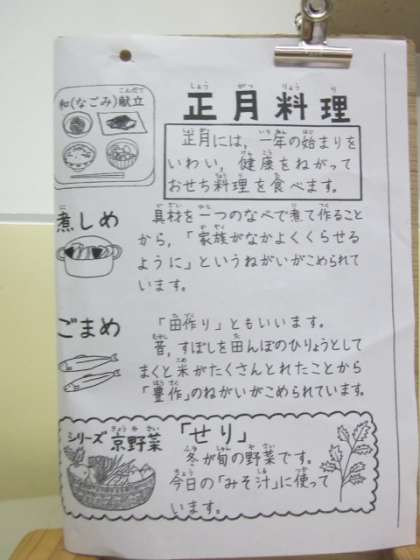 和(なごみ)献立
正月料理
正月には，一年の始まりを
いわい，健康をねがって
おせち料理を食べます。
煮しめ
具材を一つのなべで煮て作ること
から，「家族がなかよくくらせる
ように」というねがいがこめられて
います。
ごまめ
「田作り」ともいいます。
昔，すぼしを田んぼのひりょうとして
まくと米がたくさんとれたことから
「豊作」のねがいがこめられています。
シリーズ京野菜
「せり」
冬が旬の野菜です。
今日の「みそ汁」に使って
います。